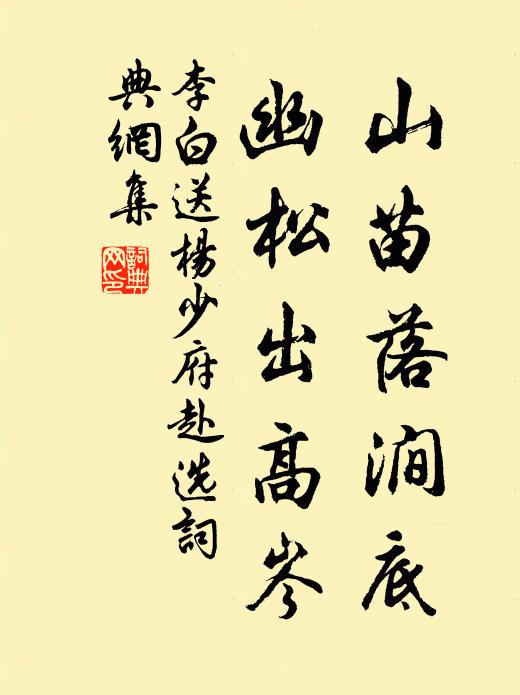 山苗落澗底
幽松出高岑
李白送楊少府赴选詞
典網集
詞典
网印